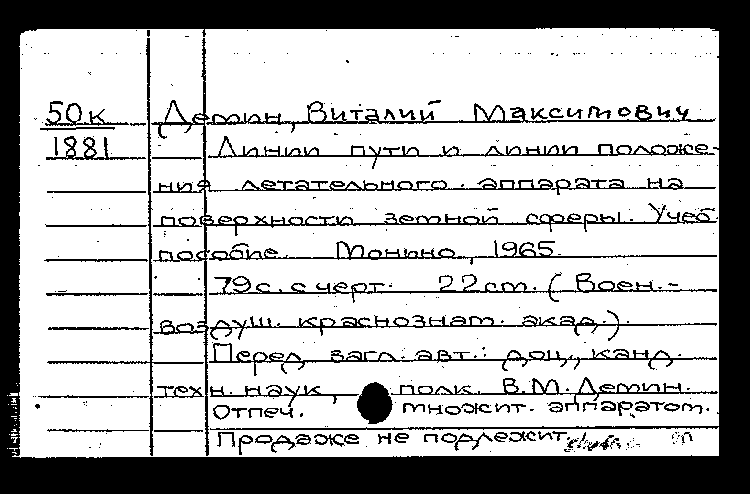 50к Демин, Виталий Максимович
1881 Линии пути и линии положе-
ния летательного аппарата на
поверхности земной сферы. Учеб.
пособие. Монино, 1965.
79с. с черт. 22см. (Воен.-
воздуш. краснознам. акад.)
Перед загл. авт.: доц., канд.
техн. наук, полк. В.М. Демин.
Отпеч. множит. аппаратом.
Продаже не подлежит